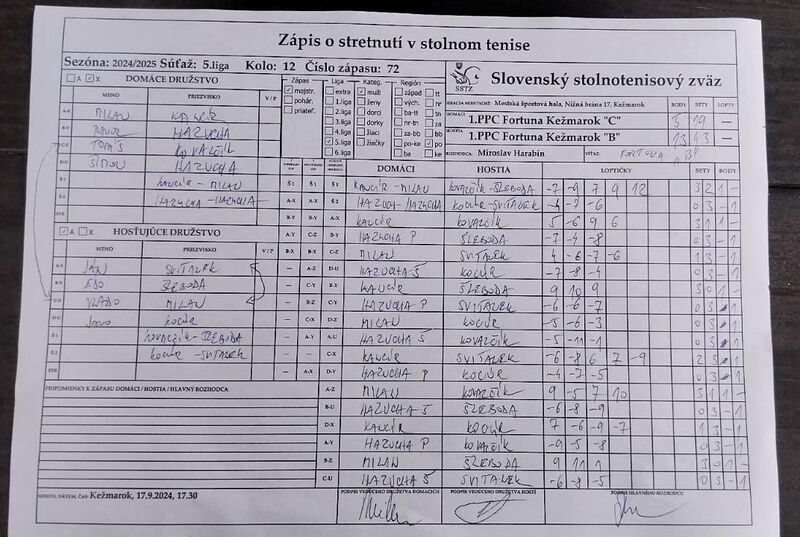 Zápis o stretnutí v stolnom tenise
Sezóna: 2024/2025 Súťaž: 5.liga Kolo: 12 Číslo zápasu: 72
Slovenský stolnotenisový zväz
SSTZ
A X DOMÁCE DRUŽSTVO
MENO PRIEZVISKO V / P
Zápas Liga Kateg. Región
majstr. extra muži západ tt
pohár. 1.liga ženy vých. nr
priateľ. 2.liga dorci ba-tt tn
3.liga dorky nr-tn za
4.liga žiaci za-bb bb
5.liga žiačky po-ke po
6.liga ba ke
HRACIA MIESTNOSŤ: Mestská športová hala, Nižná brána 17, Kežmarok BODY SETY LOPTY
DOMÁCI 1.PPC Fortuna Kežmarok "C" 5 19
HOSTIA 1.PPC Fortuna Kežmarok "B" 13 43
ROZHODCA: Miroslav Harabin VÍŤAZ: FORTUNA "B"
A-X MILAN KANCÍR
B-Y PAVOL HAZUCHA
C-Z TOMÁŠ KOVALČÍK
D-U ŠIMON HAZUCHA
Š 1 KANCÍR - MILAN
Š 2 HAZUCHA - HAZUCHA
STR
A X HOSŤUJÚCE DRUŽSTVO
MENO PRIEZVISKO V / P
A-X JÁN SVITANEK
B-Y EDO ŠLEBODA
C-Z VLADO MILAN
D-U KOCÚR
Š 1 KOVALČÍK - ŠLEBODA
Š 2 KOCÚR - SVITANEK
STR
DOMÁCI HOSTIA LOPTIČKY SETY BODY
Š 1 Š 1 Š 1 KANCÍR - MILAN KOVALČÍK - ŠLEBODA -7 -9 7 9 12 3 2 1 -
A-X A-X Š 2 HAZUCHA - HAZUCHA KOCÚR - SVITANEK -4 -7 -6 0 3 - 1
B-Y B-Y A-X KANCÍR KOVALČÍK -5 6 9 6 3 1 1 -
A-Y C-Z B-Y HAZUCHA P ŠLEBODA -7 -4 -8 0 3 - 1
B-X B-X C-Z MILAN SVITANEK 4 -6 -7 -6 1 3 - 1
— A-Z D-U HAZUCHA Š KOCÚR -7 -8 -4 0 3 - 1
— C-Y B-X KANCÍR ŠLEBODA 9 10 9 3 0 1 -
— B-Z C-Y HAZUCHA P SVITANEK -6 -6 -7 0 3 - 1
— C-X D-Z MILAN KOCÚR -5 -6 -3 0 3 - 1
— A-Y A-U HAZUCHA Š KOVALČÍK -5 -11 -1 0 3 - 1
— — C-X KANCÍR SVITANEK -6 -8 6 7 -9 2 3 - 1
— — D-Y HAZUCHA P KOCÚR -4 -7 -5 0 3 - 1
A-Z MILAN KOVALČÍK 9 -5 7 10 3 1 1 -
B-U HAZUCHA Š ŠLEBODA -6 -8 -9 0 3 - 1
D-X KANCÍR KOCÚR 7 -6 -9 -7 1 3 - 1
A-Y HAZUCHA P KOVALČÍK -9 -5 -8 0 3 - 1
B-Z MILAN ŠLEBODA 9 11 1 3 0 1 -
C-U HAZUCHA Š SVITANEK -6 -8 -5 0 3 - 1
PRIPOMIENKY K ZÁPASU DOMÁCI / HOSTIA / HLAVNÝ ROZHODCA
MIESTO, DÁTUM, ČAS: Kežmarok, 17.9.2024, 17.30
PODPIS VEDÚCEHO DRUŽSTVA DOMÁCICH PODPIS VEDÚCEHO DRUŽSTVA HOSTÍ PODPIS HLAVNÉHO ROZHODCU